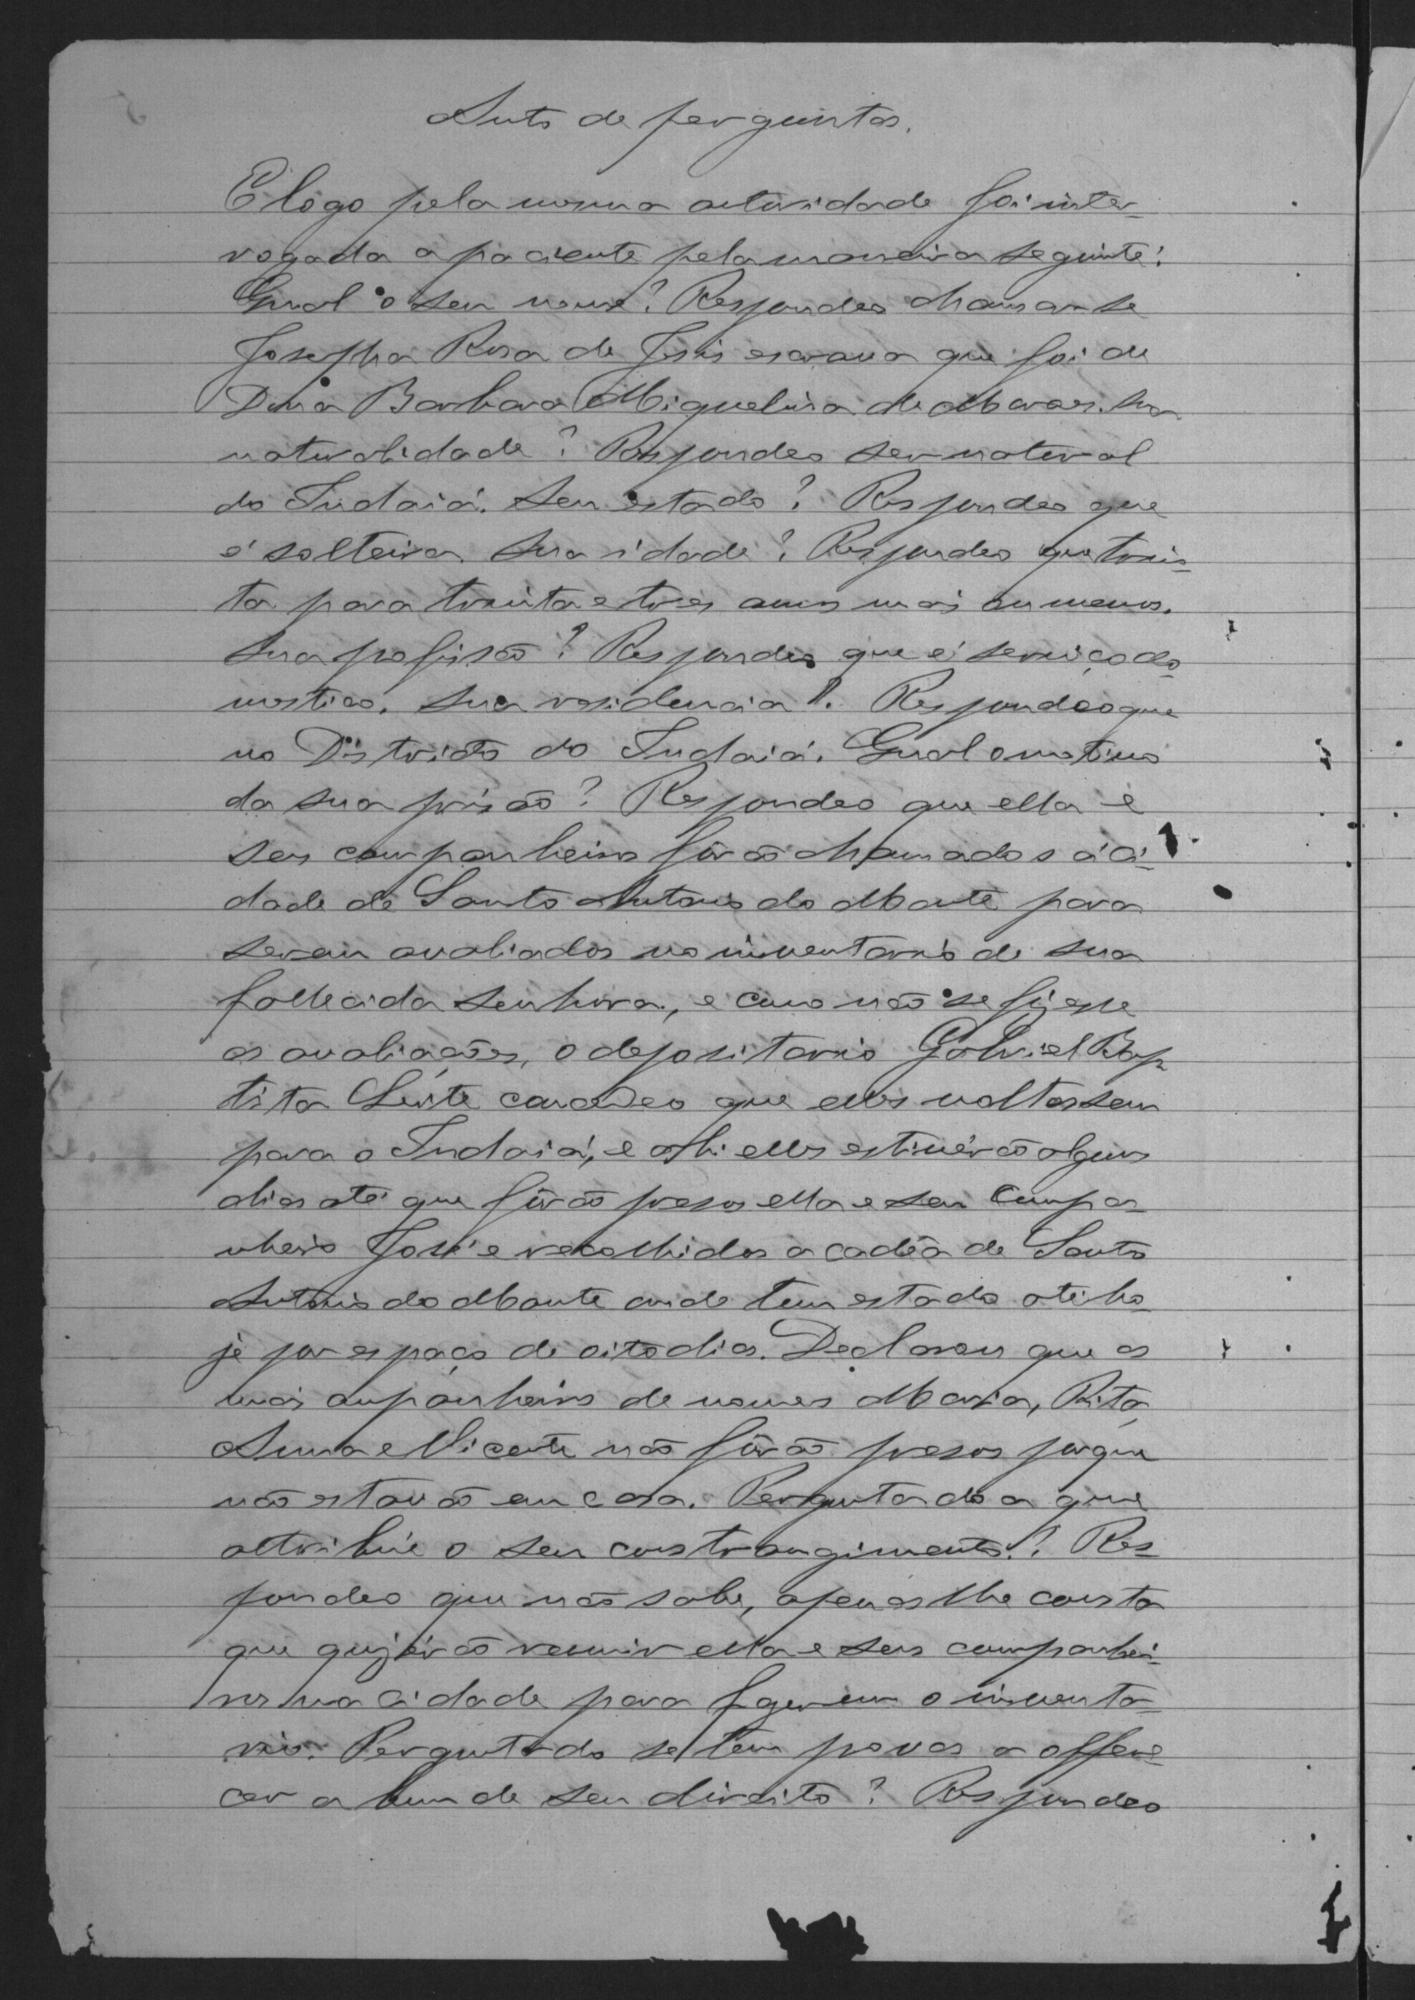 Auto de perguntas.
E logo pela mesma autoridade foi inter-
rogada a paciente pela maneira seguinte:
Qual o seu nome? Respondeo chamar se
Josepha Rosa de Jesus escrava que foi de
Dona Barbara Miguelina de Moraes. Sua
naturalidade? Respondeo ser natural
do Indaiá. Seu estado? Respondeo que
é solteira. Sua idade? Respondeo que trin-
ta para trinta e tres annos mais ou menos.
Sua profissão? Respondeo que é serviço do-
mestico. Sua residencia? Respondeo que
no Districto do Indaiá. Qual o motivo
da sua prisão? Respondeo que ella e
seus companheiros fôrão chamados á ci-
dade de Santo Antonio do Monte para
serem avaliados no inventario de sua
fallecida Senhora, e como não se fizesse
as avaliações, o depositario Gabriel Bap-
tista Leite concedeo que elles voltassem
para o Indaiá, e ahi elles estivérão alguns
dias até que fôrão presos ella e seu compa-
nheiro José e recolhidos a cadêa de Santo
Antonio do Monte onde tem estado até ho-
je por espaço de oito dias. Declarou que os
mais companheiros de nomes Maria, Rita,
Anna e Vicente não fôrão presos porque
não estavão em casa. Perguntado a que
attribúe o seu constrangimento? Res-
pondeo que não sabe, apenas lhe consta
que quizérão reunir ella e seus companhei-
ros na cidade para fazerem o inventa-
rio. Perguntado se tem provas a offere-
cer a bem de seu direito? Respondeo